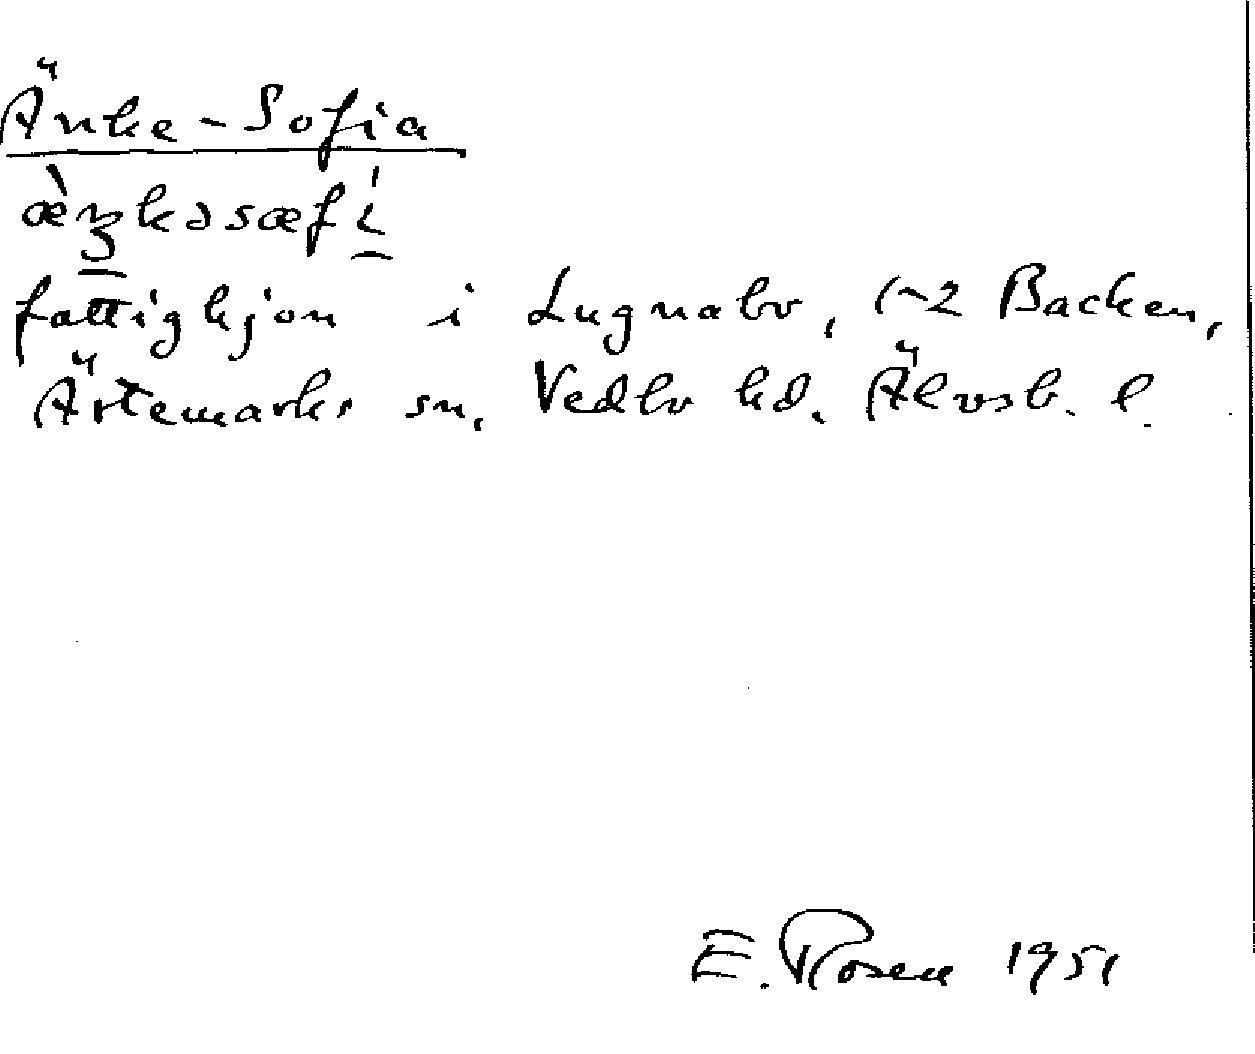 Änke-Sofia
fattighjon i Lugnabo, 1-2 Backen,
Ärtemarks sn, Vedbo hd. Älvsb. l.
E. Rosen 1951